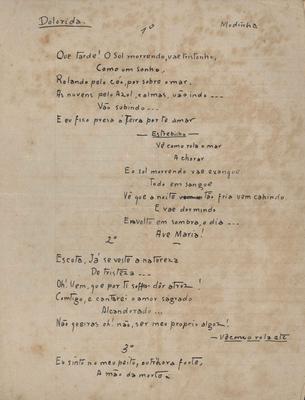 Dolorida.
1º
Modinha
Que tarde! O Sol morrendo, vae tristonho,
Como um sonho,
Rolando pelo céo, por sobre o mar.
As nuvens pelo Azul, calmas, vão indo ...
Vão subindo ...
E eu fico presa á terra por te amar
— Estribilho —
Vê como rola o mar
A chorar
E o sol morrendo vae exangue
Todo em sangue
Vê que a noite tão fria vem cahindo
E vae dormindo
Envolto em sombra, o dia ...
Ave Maria!
2º
Escuta, Já se veste a natureza
De tristeza ...
Oh! Vem, que por ti soffro dôr atroz!
Comtigo, e cantarei o amor sagrado
Alcandorado ...
Não queiras oh! não, ser meu proprio algoz!
— Vê como rola etc
3º
Eu sinto no meu peito, outrora forte,
A mão da morte